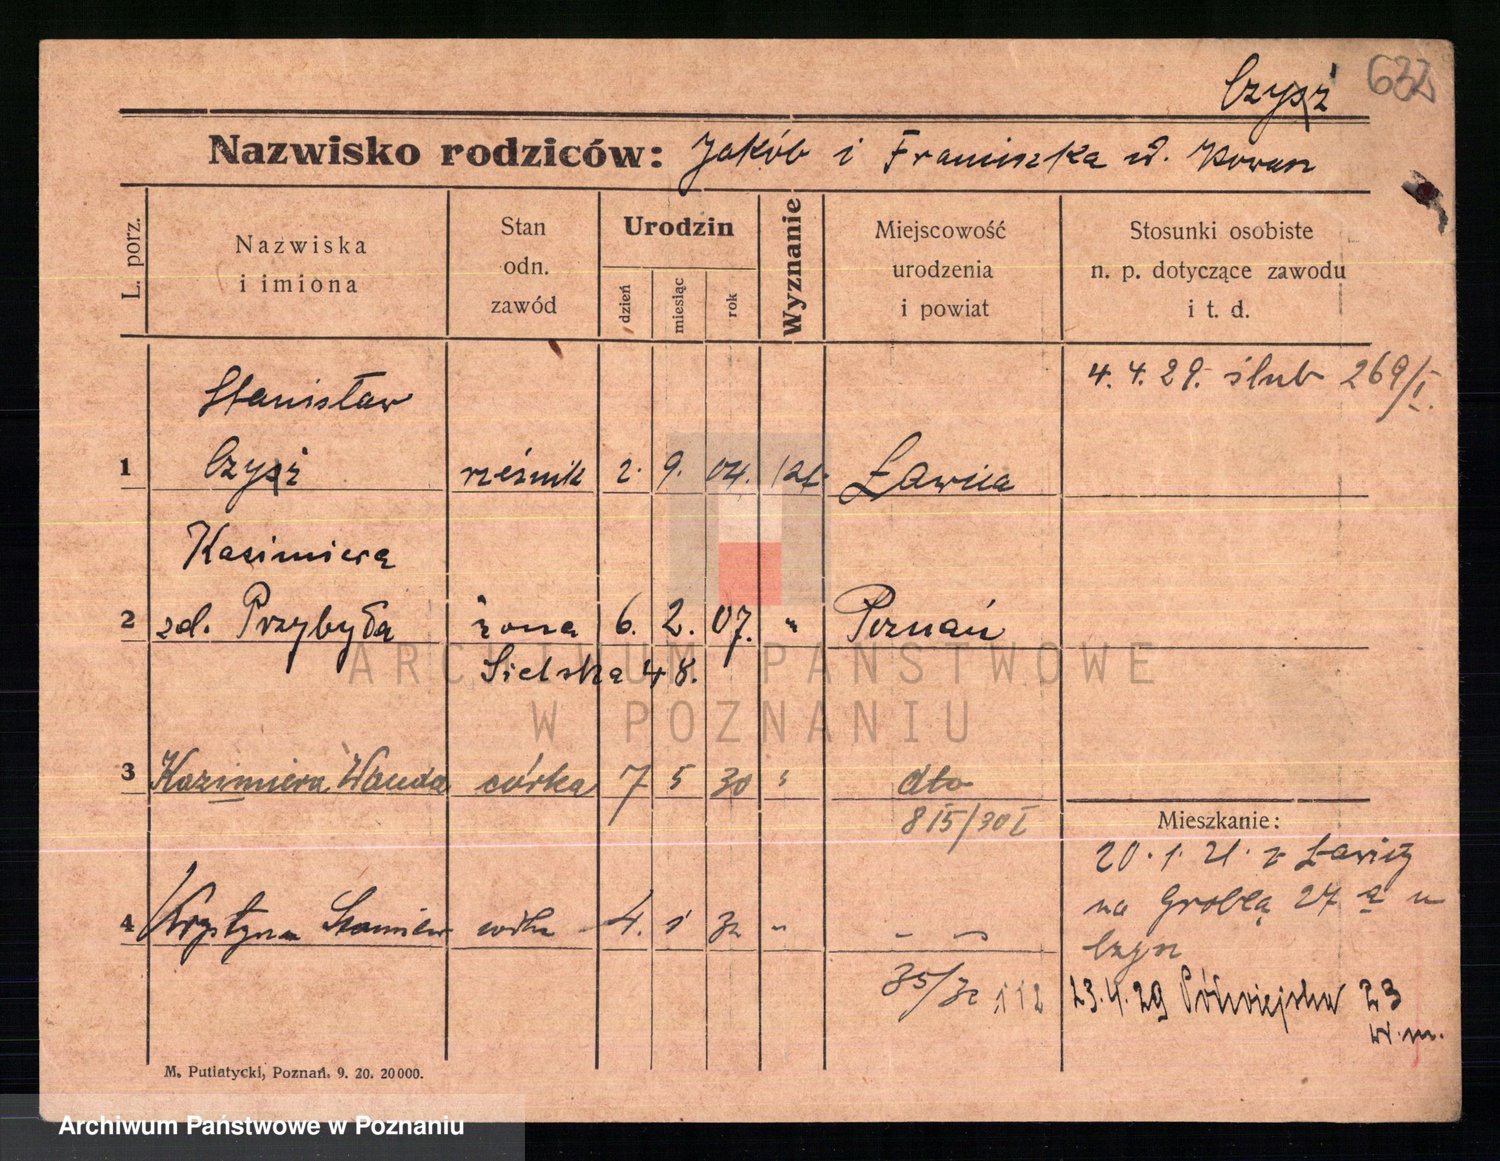 Czysż 632
Nazwisko rodziców: Jakób i Franciszka d.
L. porz.
Nazwiska
i imiona
Stan
odn.
zawód
Urodzin
dzień
miesiąc
rok
Wyznanie
Miejscowość
urodzenia
i powiat
Stosunki osobiste
n. p. dotyczące zawodu
i t. d.
4. 4. 29. ślub 269/I.
Stanisław
1 Czysż rzeźnik 2. 9. 04. kat. Ławica
Kazimiera
2 zd. Przybyła żona 6. 2. 07. " Poznań
Sielska 48.
3 Kazimiera Wanda córka 7 5 30 " dto
815/30 I
Mieszkanie:
20. 1. 21. z Ławicy
na Groblą 27 a u
4 Krystyna córka 4. 1 32 " - -
35/32 112
23. 4. 29 Półwiejska 23
W. m.
M. Putiatycki, Poznań. 9. 20. 20000.
ARCHIWUM PAŃSTWOWE
W POZNANIU
Archiwum Państwowe w Poznaniu